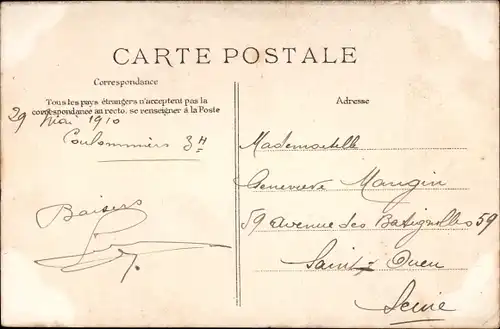 CARTE POSTALE
Correspondance
Tous les pays étrangers n'acceptent pas la
correspondance au recto, se renseigner à la Poste
29 Mai 1910
Coulommiers 3H
Baisers
Adresse
Mademoiselle
Geneviève Mangin
59 Avenue des Batignolles 59
Saint-Ouen
Seine